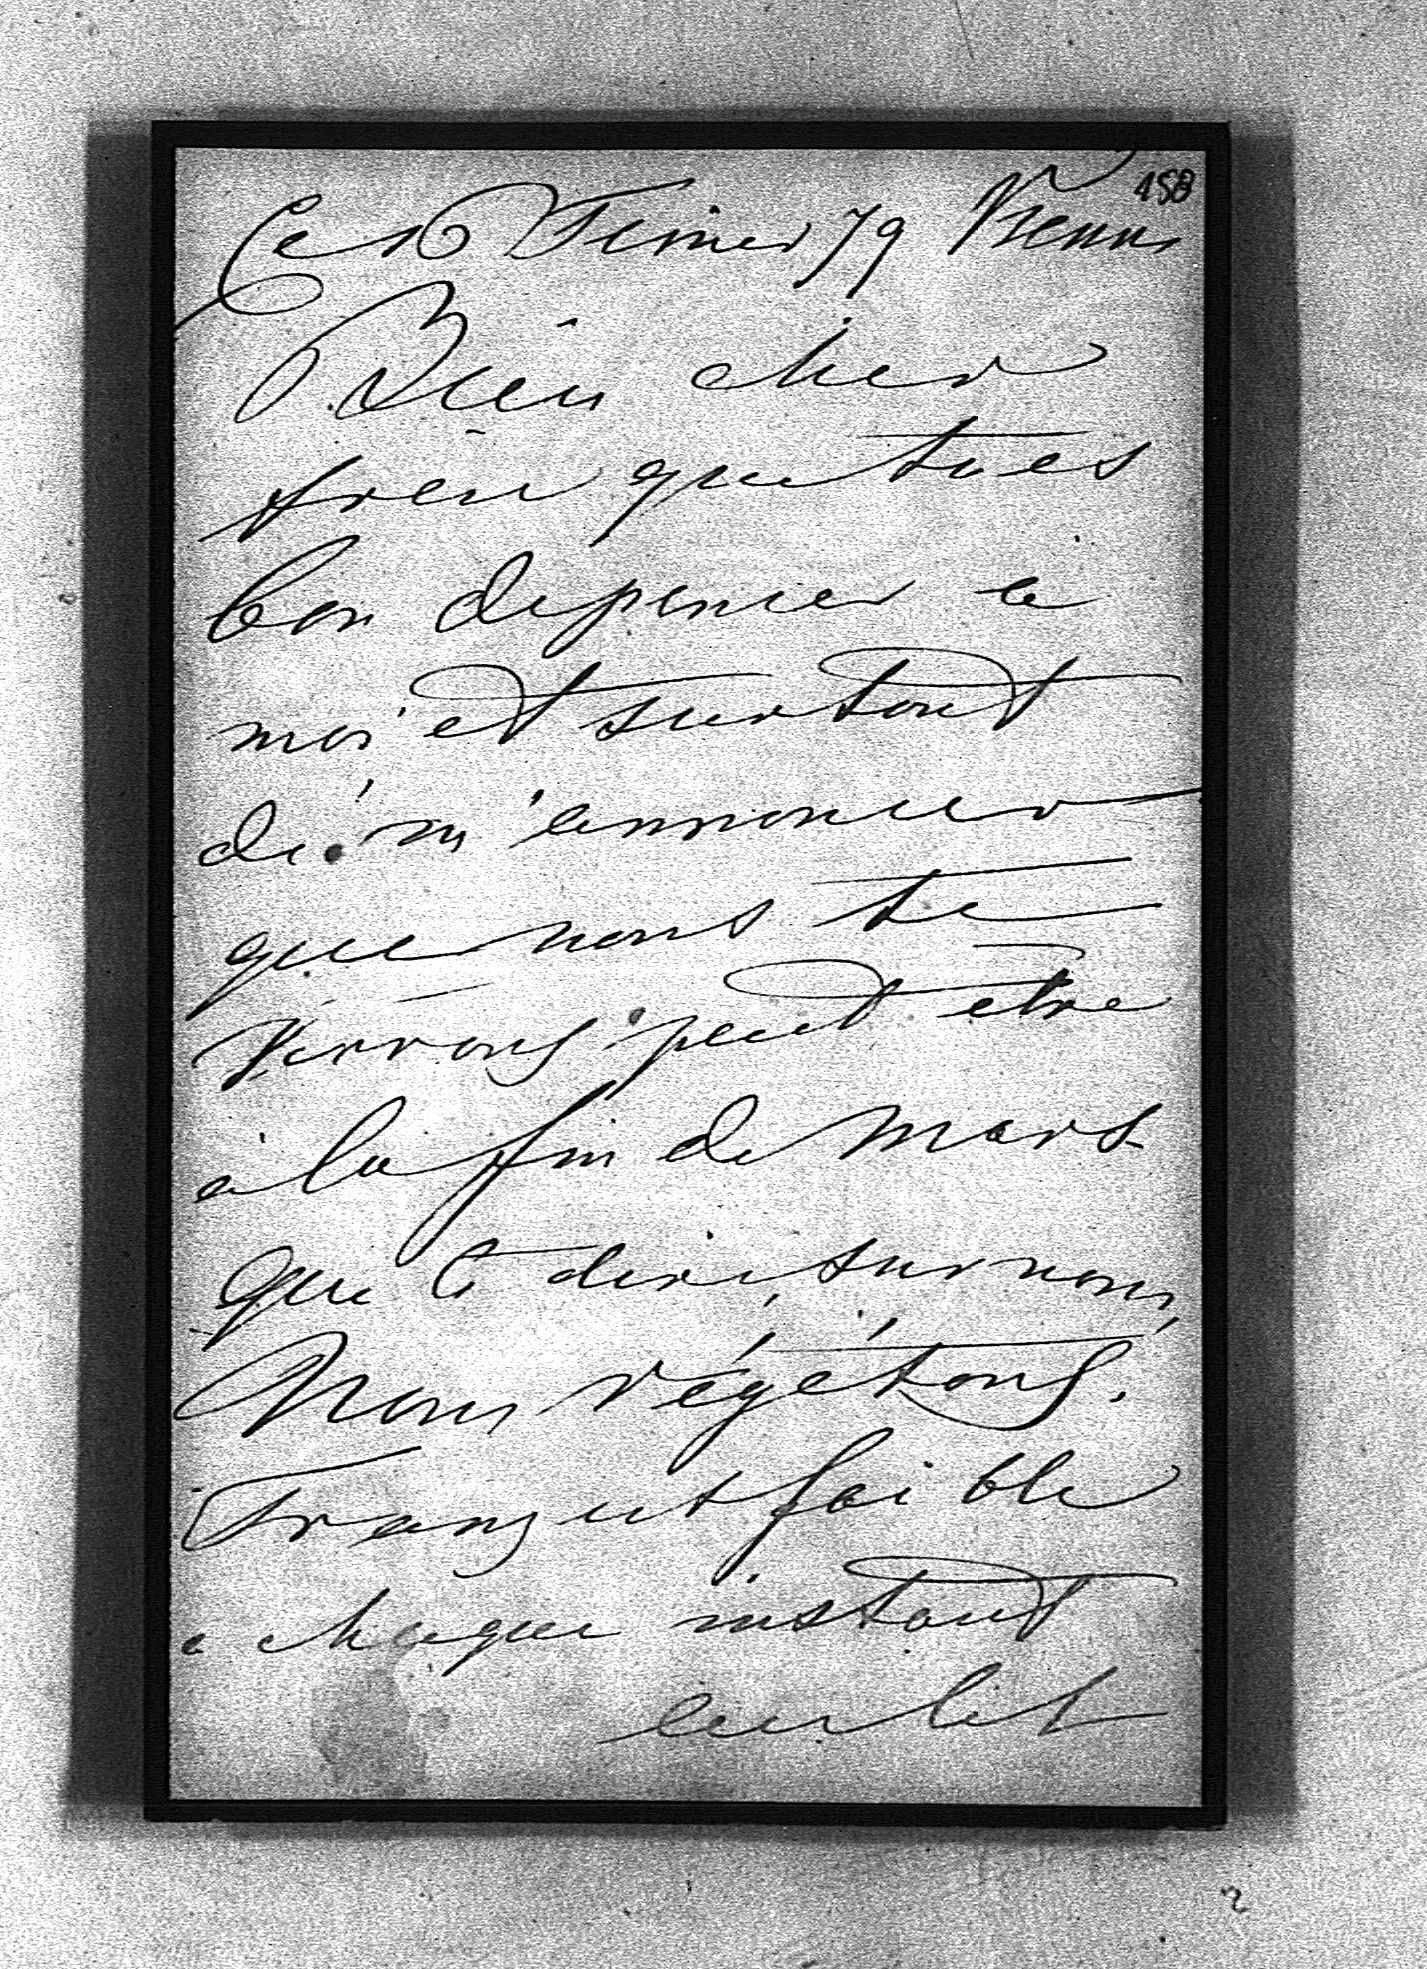 158
Ce 16 Fevrier 79 Vienne
Bien cher
frère que tu es
bon de penser a
moi et surtout
de m'annoncer
que nous te
verrons peut etre
à la fin de mars
Que te dire, sur nous,
Nous végétons.
Franz est faible
a chaque instant
au lit
2